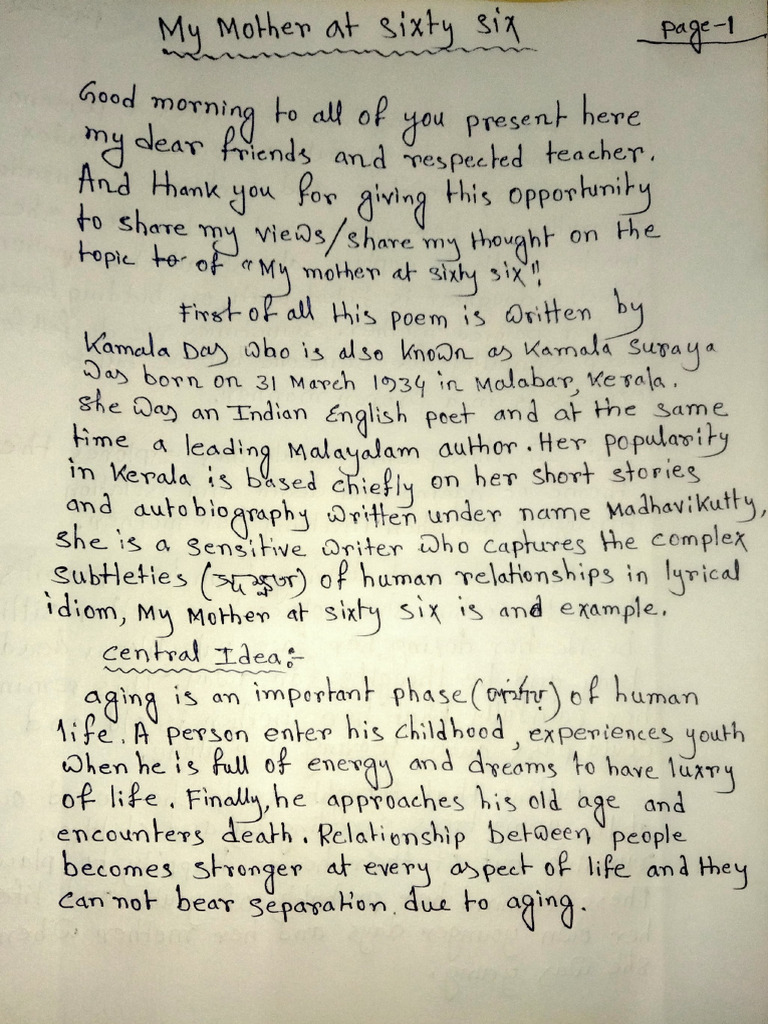 My Mother at Sixty Six
page-1
Good morning to all of you present here
my dear friends and respected teacher.
And thank you for giving this opportunity
to share my views/share my thought on the
topic to of "My mother at sixty six"!
First of all this poem is written by
Kamala Das who is also known as Kamala Suraya
was born on 31 March 1934 in Malabar, Kerala.
She was an Indian English poet and at the same
time a leading Malayalam author. Her popularity
in Kerala is based chiefly on her short stories
and autobiography written under name Madhavikutty,
She is a sensitive writer who captures the complex
subtleties () of human relationships in lyrical
idiom, My Mother at sixty six is and example.
Central Idea:-
aging is an important phase () of human
life. A person enter his childhood, experiences youth
when he is full of energy and dreams to have luxry
of life. Finally, he approaches his old age and
encounters death. Relationship between people
becomes stronger at every aspect of life and they
can not bear separation due to aging.